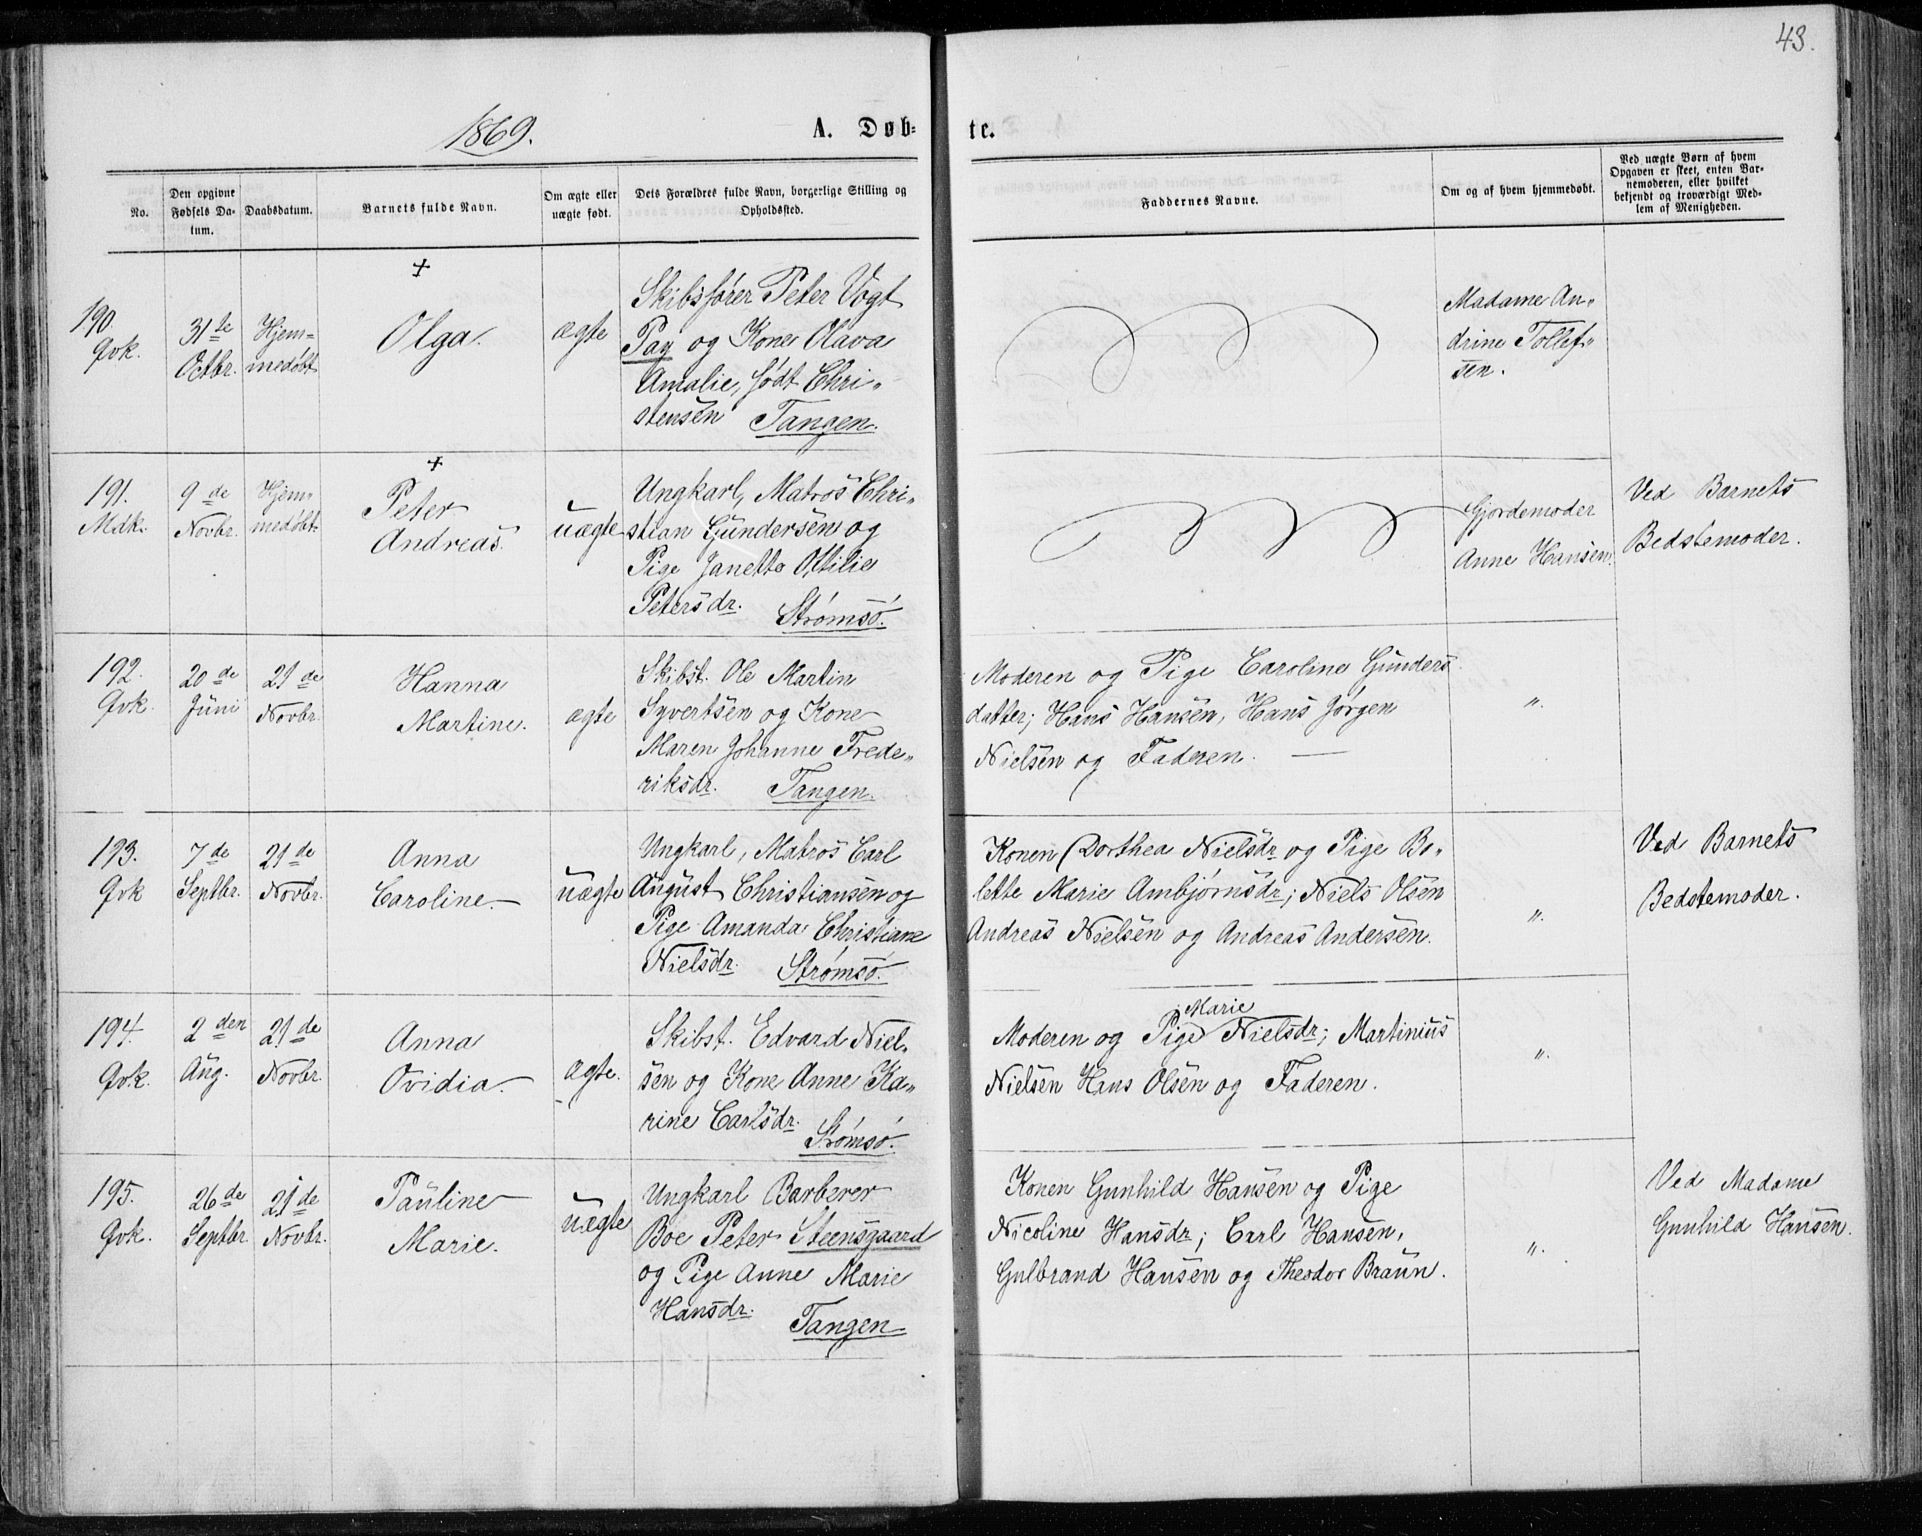 43.
1869.
A. Døb-
te.
No.
Den opgivne
Fødsels Da-
tum.
Daabsdatum.
Barnets fulde Navn.
Om ægte eller
uægte født.
Dets Forældres fulde Navn, borgerlige Stilling og
Opholdssted.
Faddernes Navne.
Om og af hvem hjemmedøbt.
Ved uægte Børn af hvem
Opgaven er skeet, enten Bar-
nemoderen, eller hvilket
bekjendt og troværdigt Med-
lem af Menigheden.
190.
Qvk.
31te
Octbr.
Hjem-
medøbt
+
Olga.
ægte
Skibsfører Peter Vogt
Pay og Kone Olava
Amalie, født Chri-
stensen Tangen.
Madame An-
drine Tollef-
sen.
191.
Mdk.
9de
Novbr.
Hjem-
medøbt.
+
Peter
Andreas.
uægte
Ungkarl, Matros Chri-
stian Gundersen og
Pige Janette Ottilie
Petersdr. Strømsø.
Gjordemoder
Anne Hansen.
Ved Barnets
Bedstemoder.
192.
Qvk.
20de
Juni
21de
Novbr.
Hanna
Martine.
ægte
Skibst. Ole Martin
Syvertsen og Kone
Maren Johanne Frede-
riksdr. Tangen.
Moderen og Pige Caroline Gunders
datter; Hans Hansen, Hans Jørgen
Nielsen og Faderen. —
"
193.
Qvk
7de
Septbr.
21de
Novbr.
Anna
Caroline.
uægte
Ungkarl, Matros Carl
August Christiansen og
Pige Amanda Christiane
Nielsdr. Strømsø.
Konen Dorthea Nielsdr og Pige Bo-
lette Marie Ambjørnsdr; Niels Olsen
Andreas Nielsen og Andreas Andersen.
"
Ved Barnets
Bedstemoder.
194.
Qvk.
2den
Aug.
21de
Novbr.
Anna
Ovidia.
ægte.
Skibst. Edvard Niel-
sen og Kone Anne Ka-
rine Carlsdr.
Strømsø.
Marie
Moderen og Pige Nielsdr; Martinius
Nielsen Hans Olsen og Faderen.
"
195.
Qvk.
26de
Septbr
21de
Novbr.
Pauline
Marie.
uægte
Ungkarl Barberer
Boe Peter Steensgaard
og Pige Anne Marie
Hansdr.
Tangen
Konen Gunhild Hansen og Pige
Nicoline Hansdr; Carl Hansen,
Gulbrand Hansen og Theodor Braun.
"
Ved Madame
Gunhild Hansen.